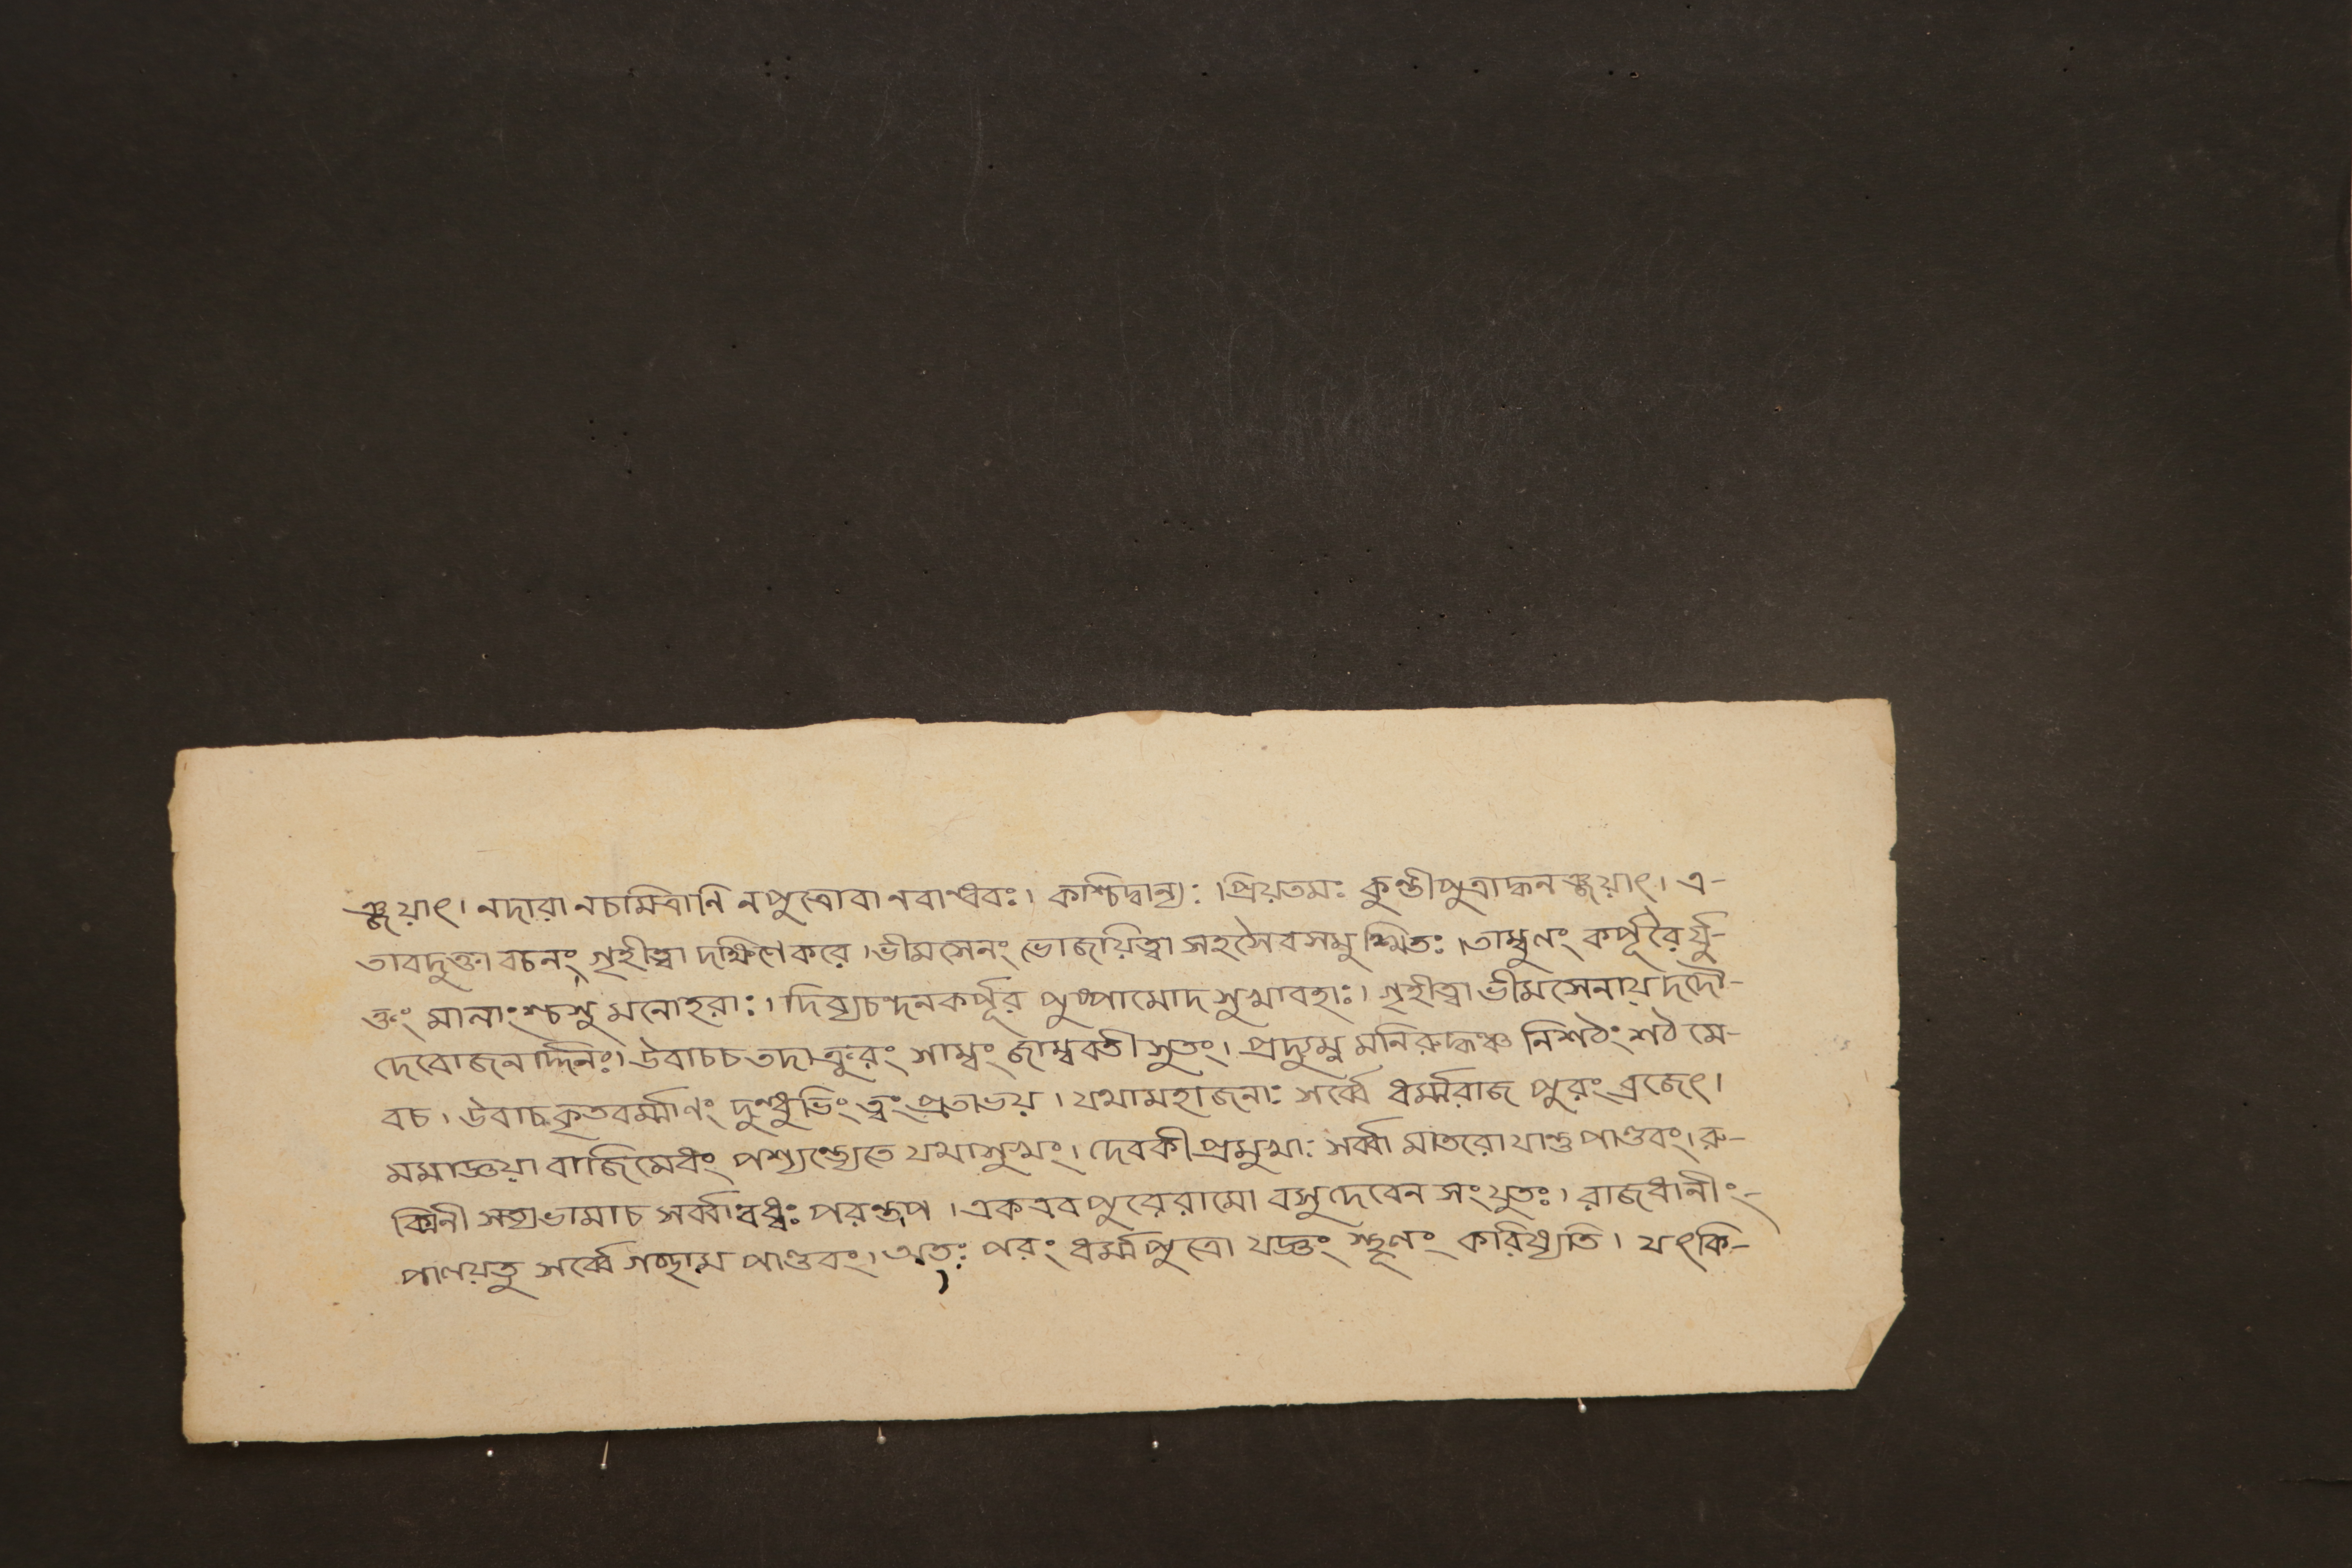 ঞ্জয়াৎ। নদারা নচমিত্রানি নপুত্রোবা নবান্ধবঃ। কশ্চিদ্বান্যঃ। প্রিয়তমঃ কুন্তীপুত্রাদ্ধনঞ্জয়াৎ। এ-
তাবদুক্তা বচনং গৃহীত্বা দক্ষিণেকরে। ভীমসেনং ভোজয়িত্বা সহসৈবসমুত্থিতঃ। তাম্বুলং কর্পূরৈর্যু-
ক্তং মালাংশ্চসুমনোহরাঃ। দিব্যচন্দনকর্পূর পুষ্পামোদ সুখাবহাঃ। গৃহীত্বা ভীমসেনায় দদৌ-
দেবোজনার্দ্দনঃ। উবাচচ তদাক্রুরং শাম্বং জাম্ববতীসুতং। প্রদ্যুম্ন মনিরুদ্ধঞ্চ নিশঠং শঠ মে-
বচ। উবাচ কৃতবর্ম্মাণং দুন্ধুভিং ত্বং প্রতাডয়। যথামহাজনাঃ সর্ব্বে ধর্ম্মরাজ পুরং ব্রজেৎ।
মমাজ্ঞয়া বাজিমেধং পশ্যন্ত্যেতে যথাসুখং। দেবকীপ্রমুখাঃ সর্ব্বা মাতরো যান্তু পাণ্ডবং। রু-
ক্মিনী সত্যভামাচ সর্ব্বা বধ্বঃ পরন্তপ। একএবপুরেরামো বসুদেবেন সংযুতঃ। রাজধানীং-
পালয়তু সর্ব্বে গচ্ছাম পাণ্ডবং। অতঃ পরং ধর্ম্মপুত্রো যজ্ঞং স্থূলং করিষ্যতি। যৎকি-